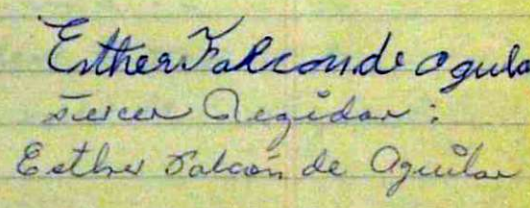 Esther Falcon de Aguila
Tercer Regidor:
Esther Falcón de Aguilar